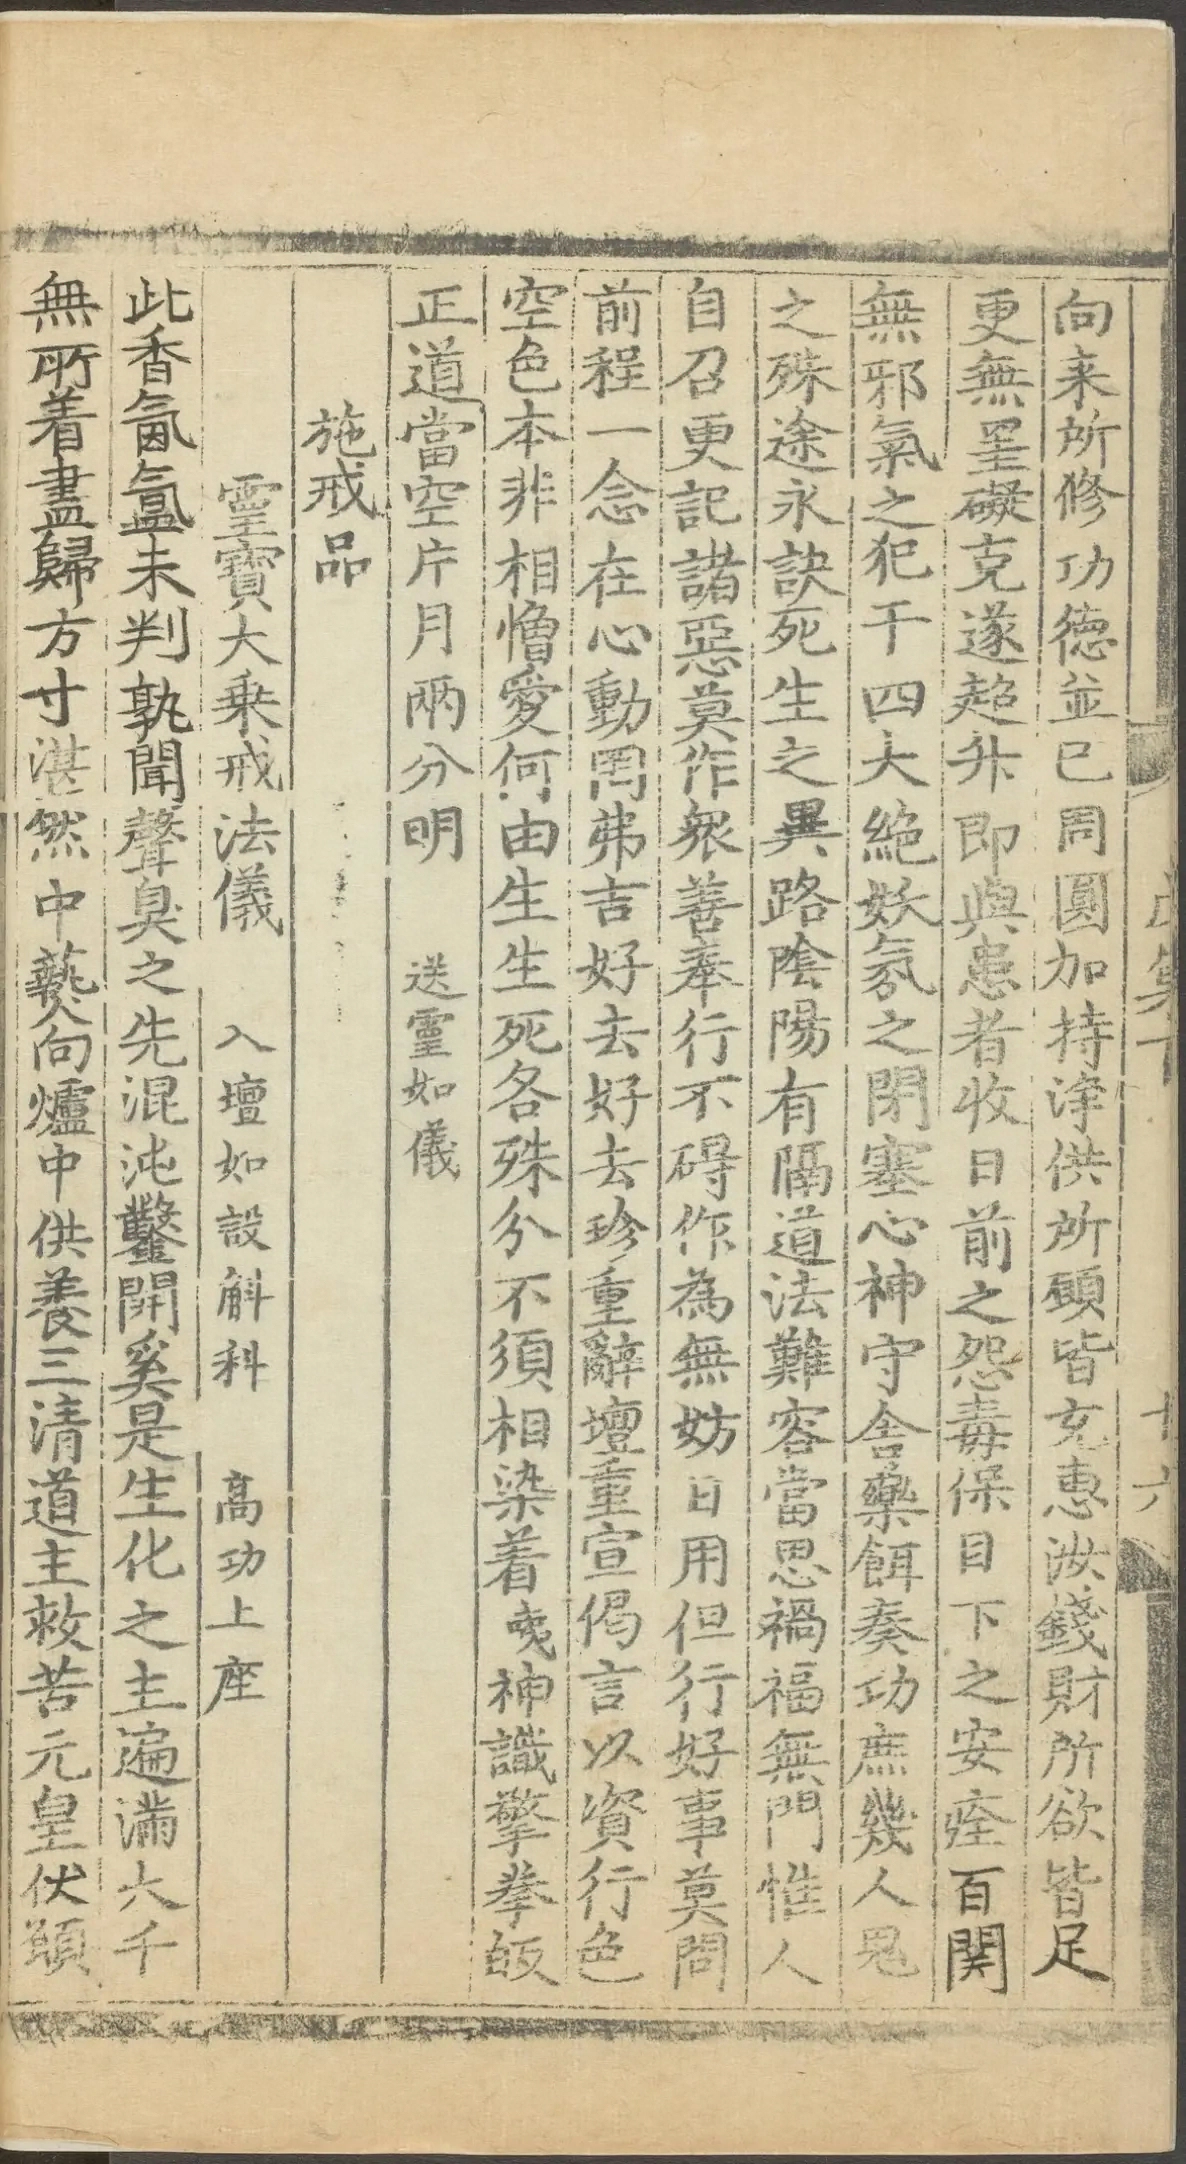 向来所修功德並已周圓加持浄供所願皆充惠汝錢財所欲皆足
更無罣礙克遂超升即與患者收日前之怨毒保目下之安痊百関
無邪氣之犯干四大絶妖氛之閉塞心神守舎藥餌奏功庶幾人鬼
之殊途永訣死生之異路陰陽有隔道法難容當思禍福無門惟人
自召更記諸惡莫作衆善奉行不碍作為無妨日用但行好事莫問
前程一念在心動罔弗吉好去好去珍重辭壇重宣偈言以資行色
空色本非相憎愛何由生生死各殊分不須相染着神識擎拳皈
正道當空片月兩分明 送靈如儀
施戒品
靈寶大乗戒法儀 入壇如設斛科 高功上座
此香氤氳未判孰聞聲臭之先混沌鑿開奚是生化之主遍満大千
無所着盡歸方寸湛然中爇向爐中供養三清道主救苦元皇伏願
十六